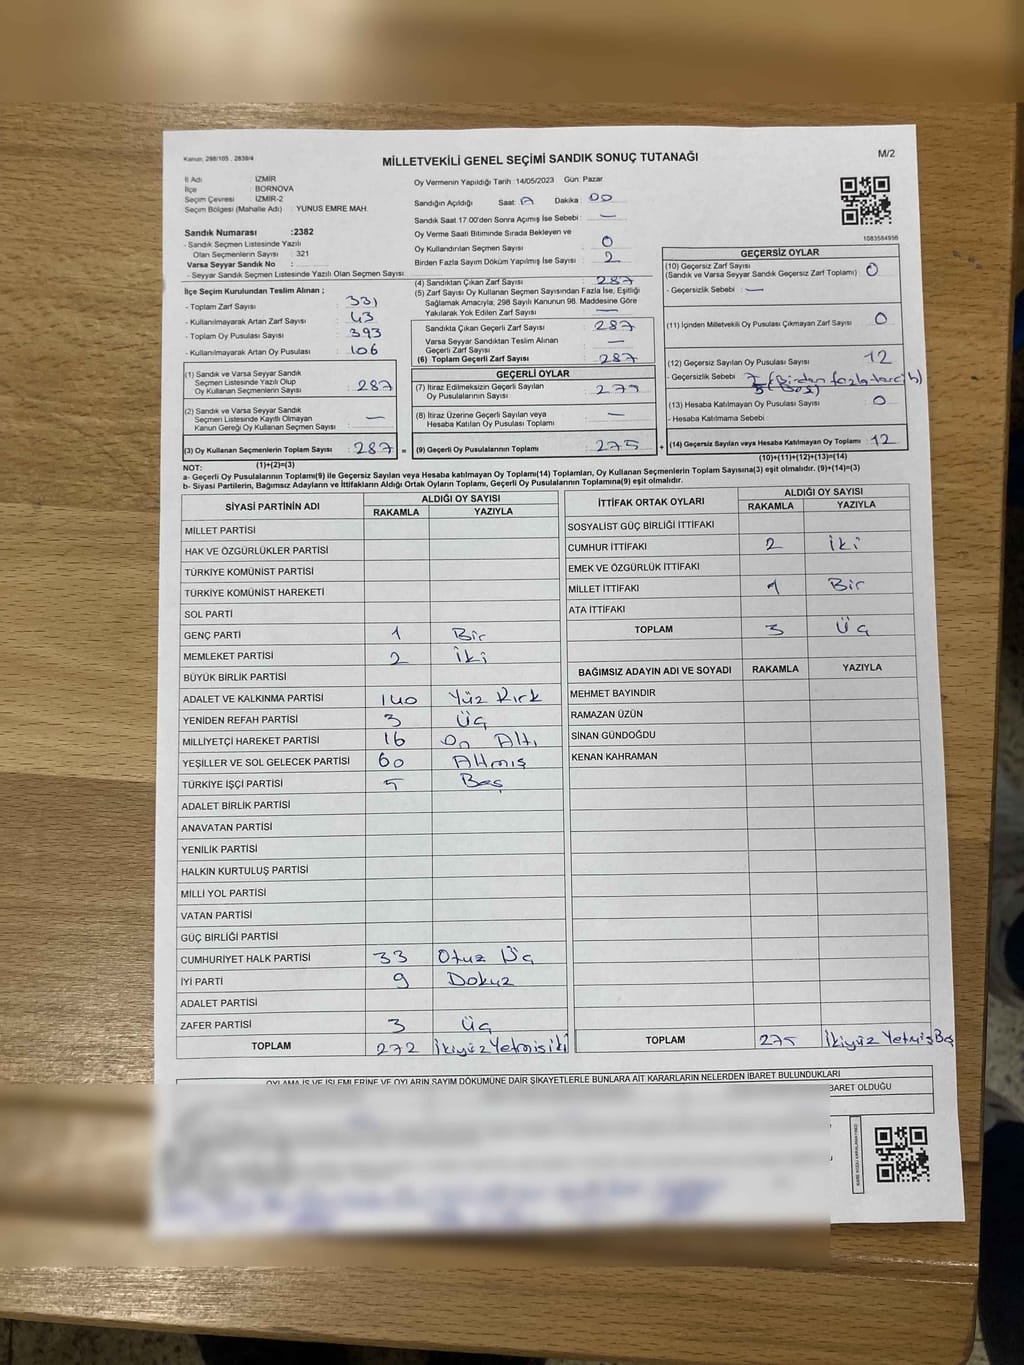 Kanun; 298/105 , 2839/4
MİLLETVEKİLİ GENEL SEÇİMİ SANDIK SONUÇ TUTANAĞI
M/2
İl Adı : İZMİR
İlçe : BORNOVA
Seçim Çevresi : İZMİR-2
Seçim Bölgesi (Mahalle Adı) : YUNUS EMRE MAH.
Sandık Numarası :2382
- Sandık Seçmen Listesinde Yazılı
Olan Seçmenlerin Sayısı : 321
Varsa Seyyar Sandık No :
- Seyyar Sandık Seçmen Listesinde Yazılı Olan Seçmen Sayısı:
Oy Vermenin Yapıldığı Tarih :14/05/2023 Gün: Pazar
Sandığın Açıldığı Saat: Dakika : 00
Sandık Saat 17:00'den Sonra Açımış İse Sebebi : —
Oy Verme Saati Bitiminde Sırada Bekleyen ve
Oy Kullandırılan Seçmen Sayısı : 0
Birden Fazla Sayım Döküm Yapılmış İse Sayısı : 2
1083584956
İlçe Seçim Kurulundan Teslim Alınan ;
- Toplam Zarf Sayısı : 331
- Kullanılmayarak Artan Zarf Sayısı : 43
- Toplam Oy Pusulası Sayısı : 393
- Kullanılmayarak Artan Oy Pusulası : 106
(1) Sandık ve Varsa Seyyar Sandık
Seçmen Listesinde Yazılı Olup
Oy Kullanan Seçmenlerin Sayısı : 287
(2) Sandık ve Varsa Seyyar Sandık
Seçmen Listesinde Kayıtlı Olmayan
Kanun Gereği Oy Kullanan Seçmen Sayısı : —
(3) Oy Kullanan Seçmenlerin Toplam Sayısı : 287 =
(1)+(2)=(3)
(4) Sandıktan Çıkan Zarf Sayısı : 287
(5) Zarf Sayısı Oy Kullanan Seçmen Sayısından Fazla İse, Eşitliği
Sağlamak Amacıyla; 298 Sayılı Kanunun 98. Maddesine Göre
Yakılarak Yok Edilen Zarf Sayısı : —
Sandıkta Çıkan Geçerli Zarf Sayısı : 287
Varsa Seyyar Sandıktan Teslim Alınan
Geçerli Zarf Sayısı : —
(6) Toplam Geçerli Zarf Sayısı : 287
GEÇERLİ OYLAR
(7) İtiraz Edilmeksizin Geçerli Sayılan
Oy Pusulalarının Sayısı : 275
(8) İtiraz Üzerine Geçerli Sayılan veya
Hesaba Katılan Oy Pusulası Toplamı : —
(9) Geçerli Oy Pusulalarının Toplamı : 275 +
GEÇERSİZ OYLAR
(10) Geçersiz Zarf Sayısı
(Sandık ve Varsa Seyyar Sandık Geçersiz Zarf Toplamı) : 0
- Geçersizlik Sebebi : —
(11) İçinden Milletvekili Oy Pusulası Çıkmayan Zarf Sayısı : 0
(12) Geçersiz Sayılan Oy Pusulası Sayısı : 12
- Geçersizlik Sebebi : 7 (Birden fazla tercih)
5 (Boş)
(13) Hesaba Katılmayan Oy Pusulası Sayısı : 0
- Hesaba Katılmama Sebebi :
(14) Geçersiz Sayılan veya Hesaba Katılmayan Oy Toplamı : 12
(10)+(11)+(12)+(13)=(14)
NOT:
a- Geçerli Oy Pusulalarının Toplamı(9) ile Geçersiz Sayılan veya Hesaba katılmayan Oy Toplamı(14) Toplamları, Oy Kullanan Seçmenlerin Toplam Sayısına(3) eşit olmalıdır. (9)+(14)=(3)
b- Siyasi Partilerin, Bağımsız Adayların ve İttifakların Aldığı Ortak Oyların Toplamı, Geçerli Oy Pusulalarının Toplamına(9) eşit olmalıdır.
SİYASİ PARTİNİN ADI ALDIĞI OY SAYISI
RAKAMLA YAZIYLA
MİLLET PARTİSİ
HAK VE ÖZGÜRLÜKLER PARTİSİ
TÜRKİYE KOMÜNİST PARTİSİ
TÜRKİYE KOMÜNİST HAREKETİ
SOL PARTİ
GENÇ PARTİ 1 Bir
MEMLEKET PARTİSİ 2 İki
BÜYÜK BİRLİK PARTİSİ
ADALET VE KALKINMA PARTİSİ 140 Yüz Kırk
YENİDEN REFAH PARTİSİ 3 Üç
MİLLİYETÇİ HAREKET PARTİSİ 16 On Altı
YEŞİLLER VE SOL GELECEK PARTİSİ 60 Altmış
TÜRKİYE İŞÇİ PARTİSİ 5 Beş
ADALET BİRLİK PARTİSİ
ANAVATAN PARTİSİ
YENİLİK PARTİSİ
HALKIN KURTULUŞ PARTİSİ
MİLLİ YOL PARTİSİ
VATAN PARTİSİ
GÜÇ BİRLİĞİ PARTİSİ
CUMHURİYET HALK PARTİSİ 33 Otuz Üç
İYİ PARTİ 9 Dokuz
ADALET PARTİSİ
ZAFER PARTİSİ 3 Üç
TOPLAM 272 İkiyüz Yetmiş iki
İTTİFAK ORTAK OYLARI ALDIĞI OY SAYISI
RAKAMLA YAZIYLA
SOSYALİST GÜÇ BİRLİĞİ İTTİFAKI
CUMHUR İTTİFAKI 2 İki
EMEK VE ÖZGÜRLÜK İTTİFAKI
MİLLET İTTİFAKI 1 Bir
ATA İTTİFAKI
TOPLAM 3 Üç
BAĞIMSIZ ADAYIN ADI VE SOYADI RAKAMLA YAZIYLA
MEHMET BAYINDIR
RAMAZAN ÜZÜN
SİNAN GÜNDOĞDU
KENAN KAHRAMAN
TOPLAM 275 İkiyüz Yetmiş Beş
OYLAMA İŞ VE İŞLEMLERİNE VE OYLARIN SAYIM DÖKÜMÜNE DAİR ŞİKAYETLERLE BUNLARA AİT KARARLARIN NELERDEN İBARET BULUNDUKLARI
BARET OLDUĞU